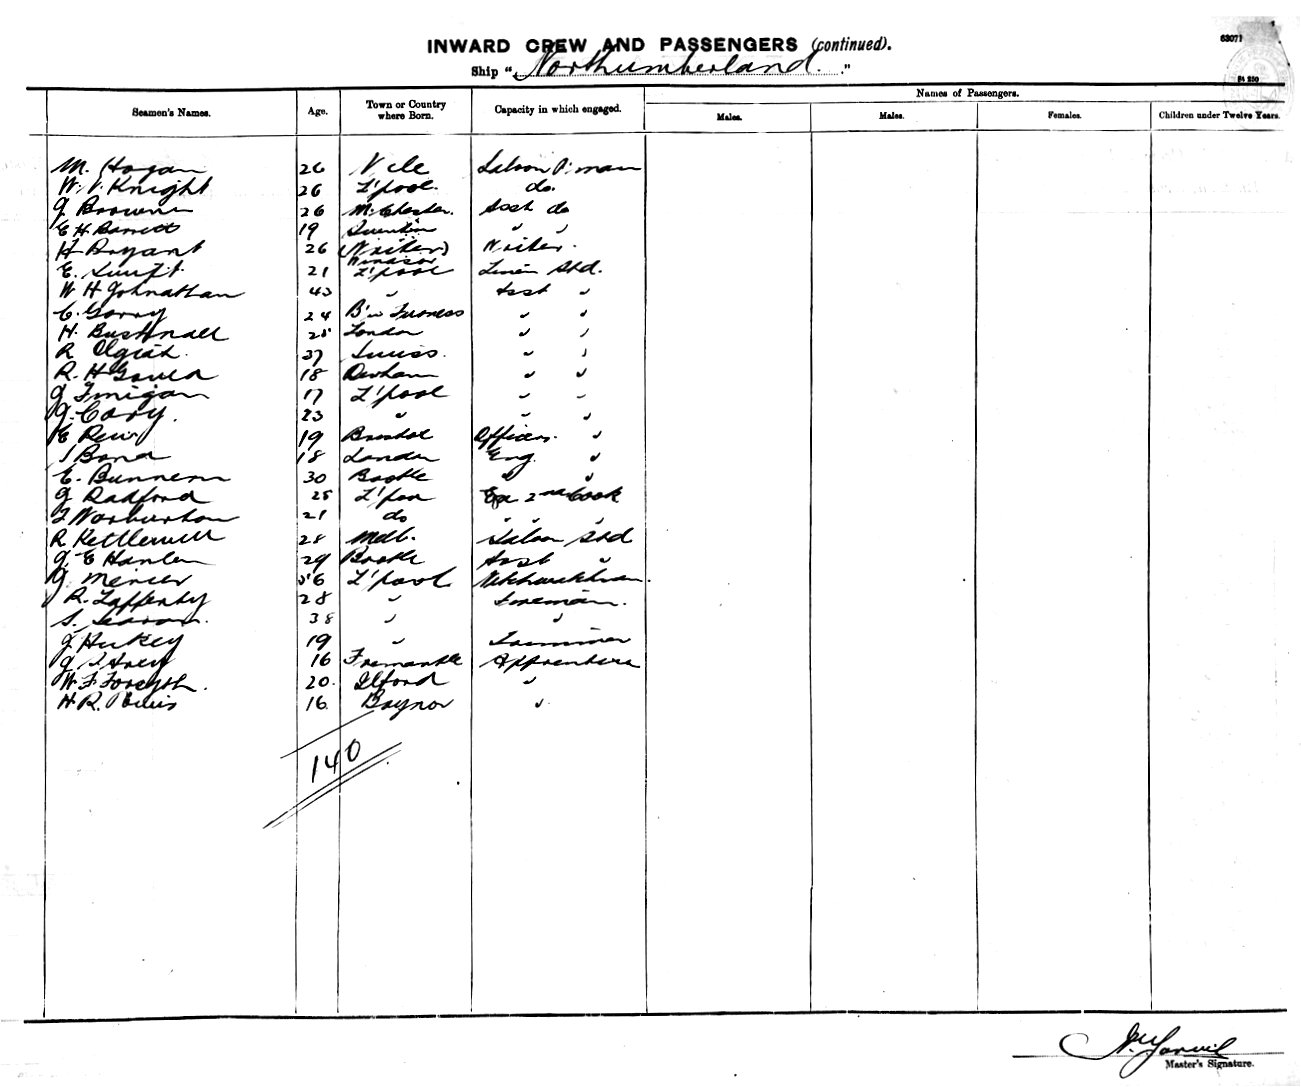 63071
INWARD CREW AND PASSENGERS (continued).
Ship "Northumberland."
84 250
Seamen's Names. Age. Town or Country where Born. Capacity in which engaged. Names of Passengers.
Males. Males. Females. Children under Twelve Years.
M. Hogan 26 Saloon P. man
W. V. Knight 26 L'pool. do.
J Brown 26 M. Chester. Asst do
E H Barrett 19 " "
H Bryant 26 (Writer) Windsor Writer.
E. Swift 21 L'pool Linen Std.
W H Johnathan 43 " Asst "
C. Gorry 24 B'w Furness " "
H. Bushnall 25 London " "
R 37 Swiss. " "
R. H Gould 18 Durham " "
J Finigan 17 L'pool " "
J. Cory. 23 " " "
E Rew 19 Bristol Officers. "
Bond 18 London Eng. "
E. Bunnern 30 Bootle " "
J Radford 25 L'poo 2nd Cook
Warburton 21 do " " "
R Kettlewell 28 Melb. Saloon Std
J. E Hanlen 29 Bootle Asst "
J. Mercer 56 L'pool
R. Lafferty 28 " Fireman.
S. 38 " "
J Huxey 19 " Trimmer
J 16 Fremantle Apprentice
W. F. Forsyth. 20. Ilford "
H R. 16. Baynor "
140
Master's Signature.